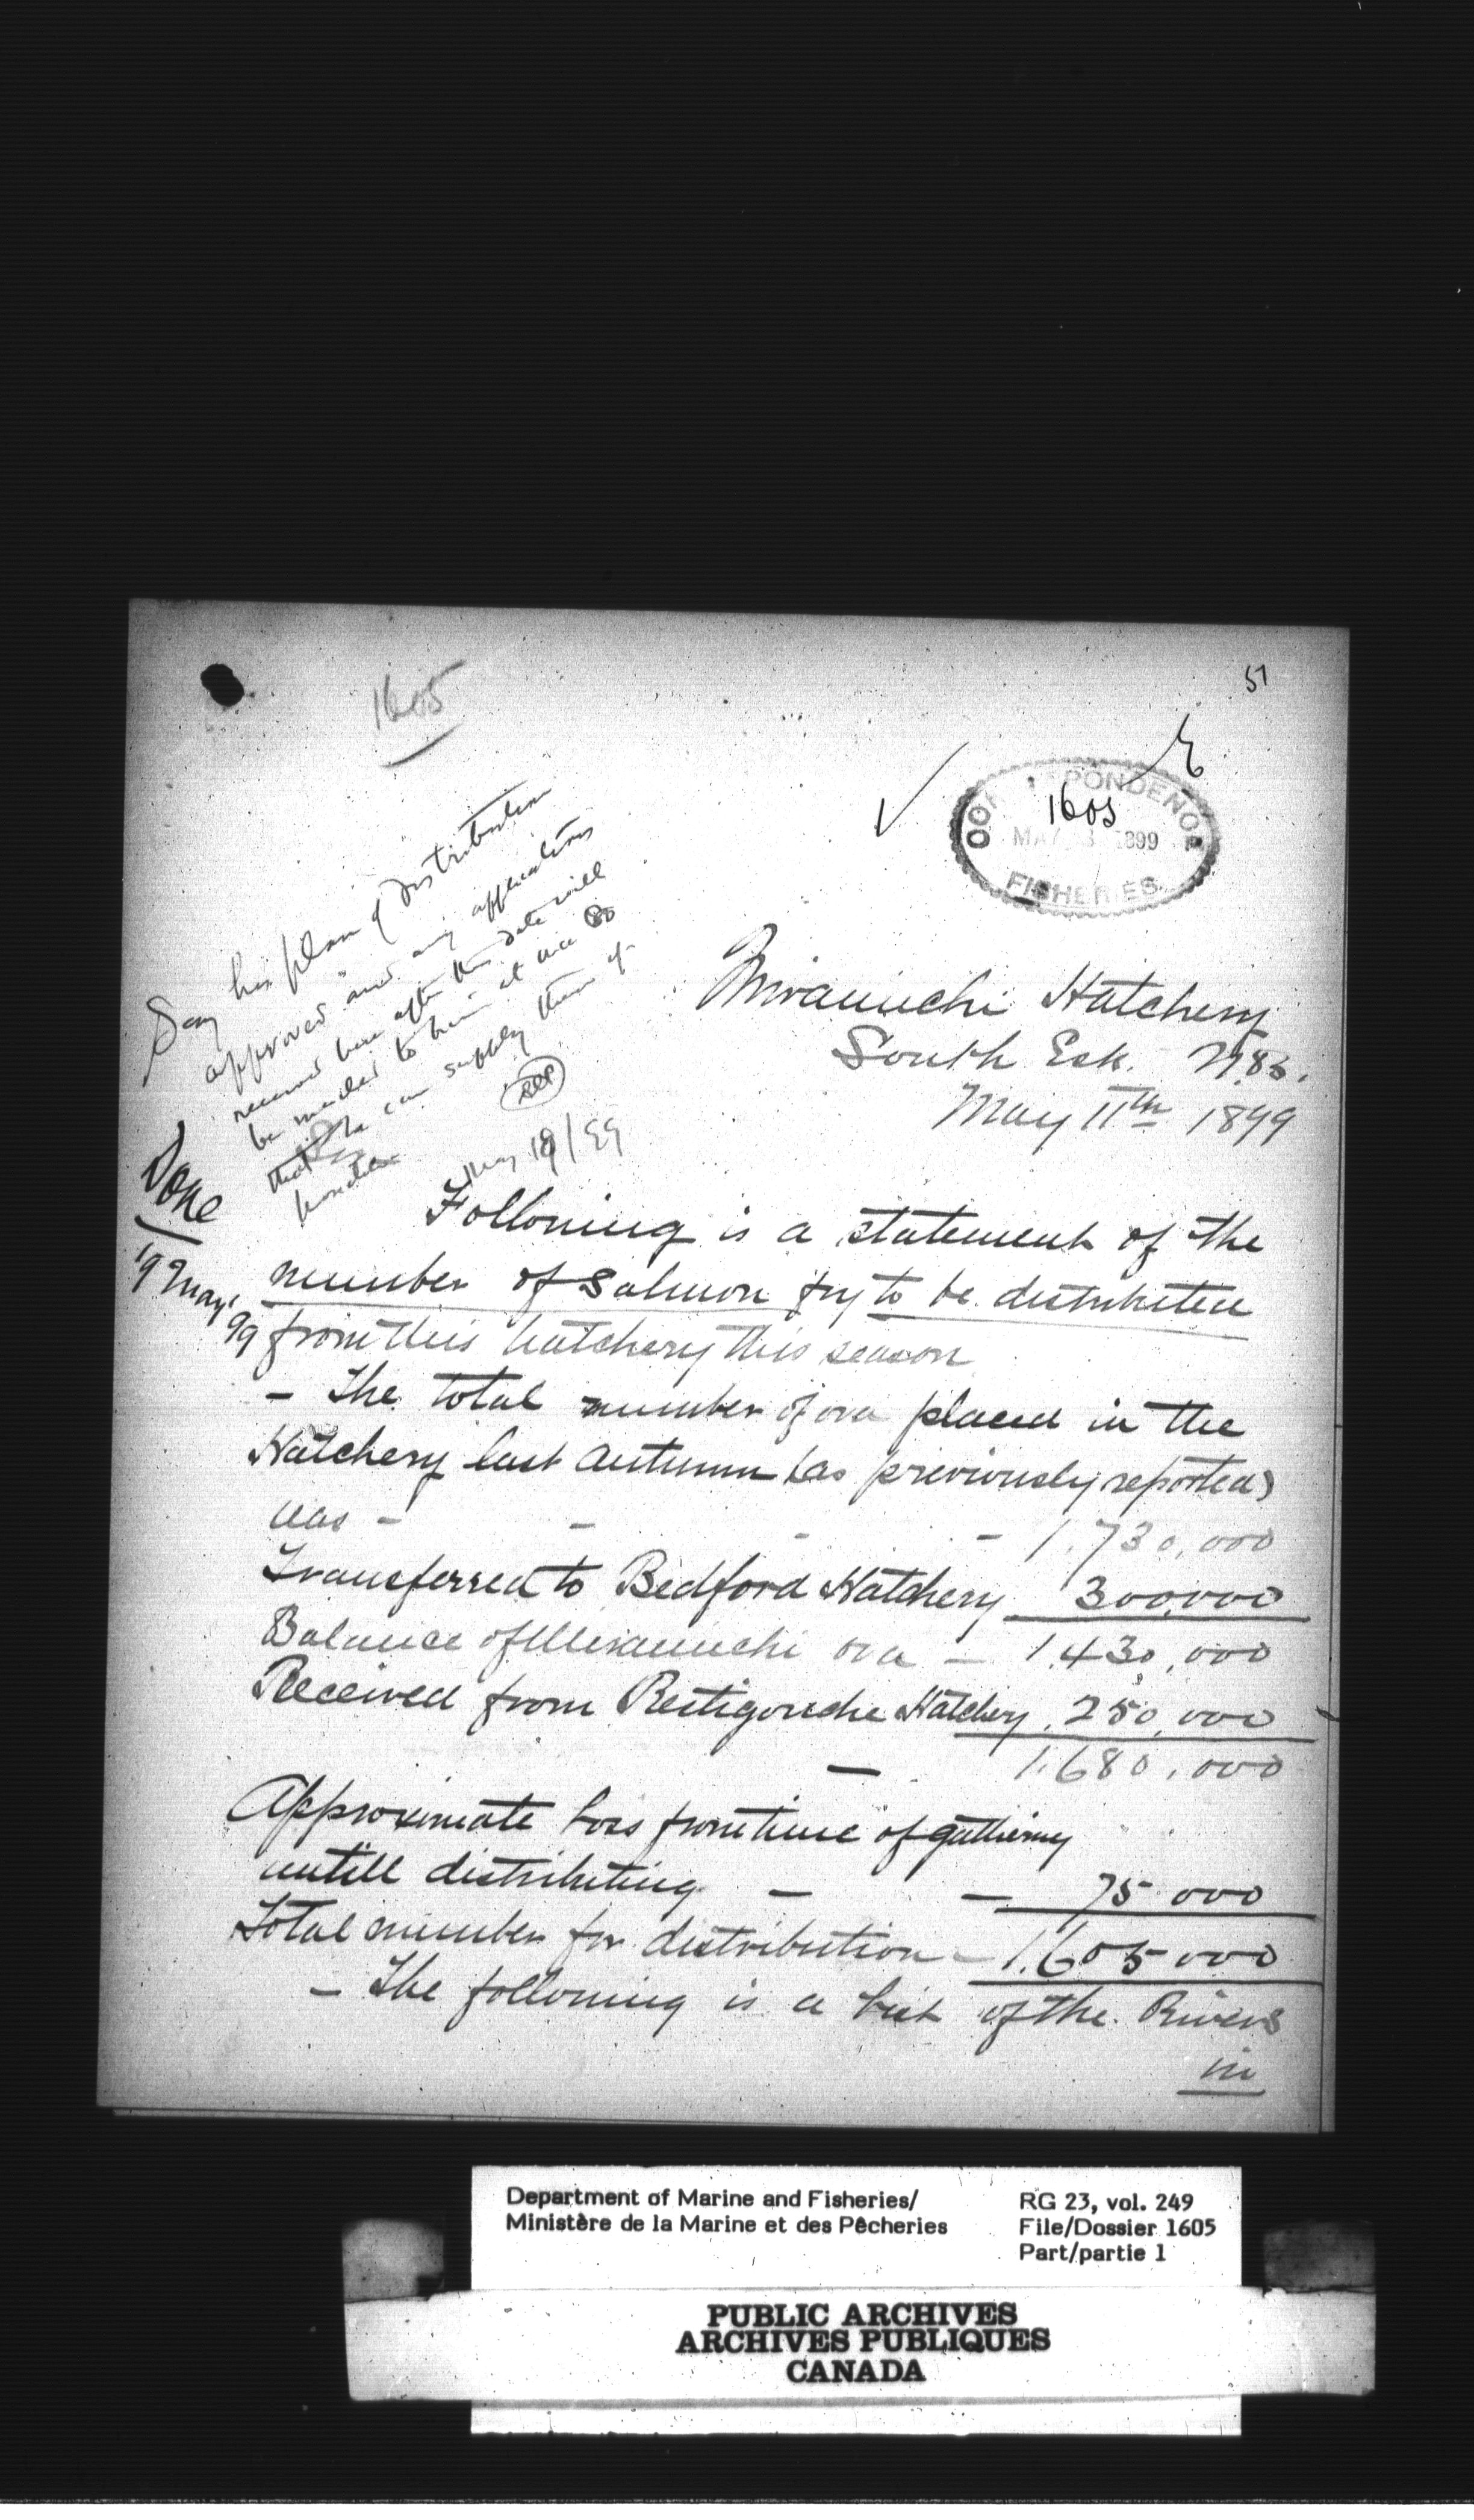 51
1605
CORRESPONDENCE
1605
MAY 13 1899
FISHERIES
Say his plan of distribution
approved and any applications
received here after this date will
be mailed to him at once so
that he can supply them if
possible
May 18/99
Done
19 May,
99
Miramichi Hatchery
South Esk. N.B.
May 11th 1899
Following is a statement of the
number of salmon fry to be distributed
from this hatchery this season
- The total number of ova placed in the
Hatchery last autumn (as previously reported)
was - - - - 1.730,000
Transferred to Bedford Hatchery 300,000
Balance of Miramichi ova - 1.430,000
Received from Restigouche Hatchery, 250,000
- 1.680,000
Approximate loss from time of gathering
untill distributing - - 75 000
Total number for distribution - 1.605 000
- The following is a list of the Rivers
in
Department of Marine and Fisheries/
Ministère de la Marine et des Pêcheries
RG 23, vol. 249
File/Dossier 1605
Part/partie 1
PUBLIC ARCHIVES
ARCHIVES PUBLIQUES
CANADA